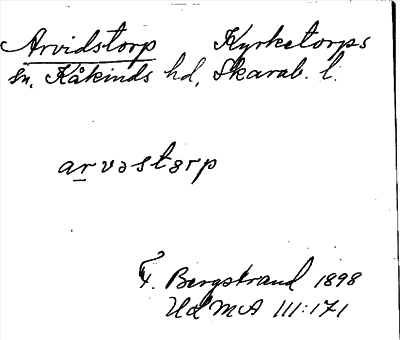 Arvidstorp Kyrketorps
sn, Kåkinds hd, Skarab. l.
arvəstərp
F. Bergstrand 1898
III:171